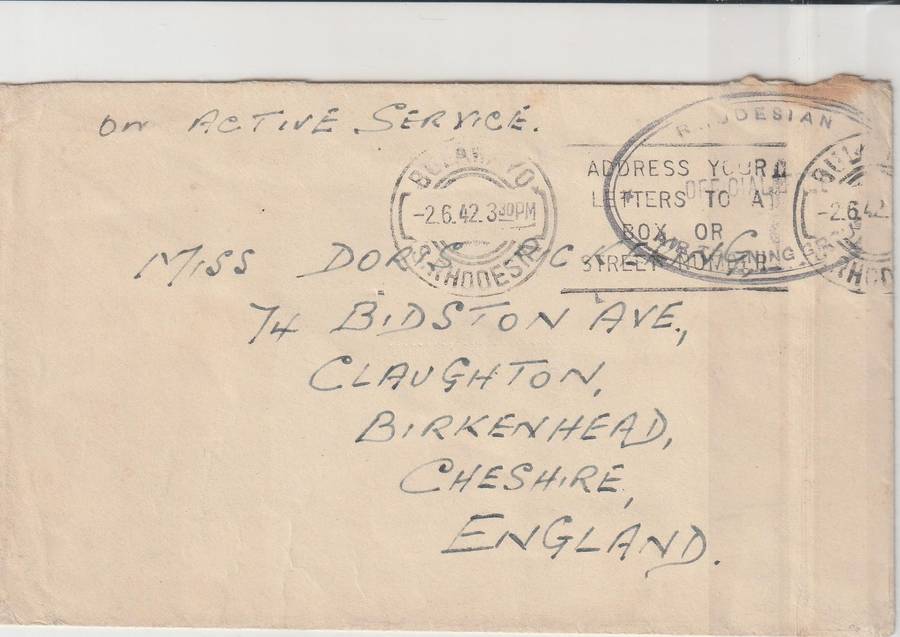 On ACTIVE SERVICE.
BULAWAYO
-2.6.42.3 30PM
S. RHODESIA
ADDRESS YOUR
LETTERS TO A
BOX OR
STREET NUMBER
RHODESIAN
OFFICIAL
AIR TRAINING GROUP
BULAWAYO
-2.6.42.
RHODESIA
MISS DORIS
74 BIDSTON AVE.,
CLAUGHTON,
BIRKENHEAD,
CHESHIRE,
ENGLAND.